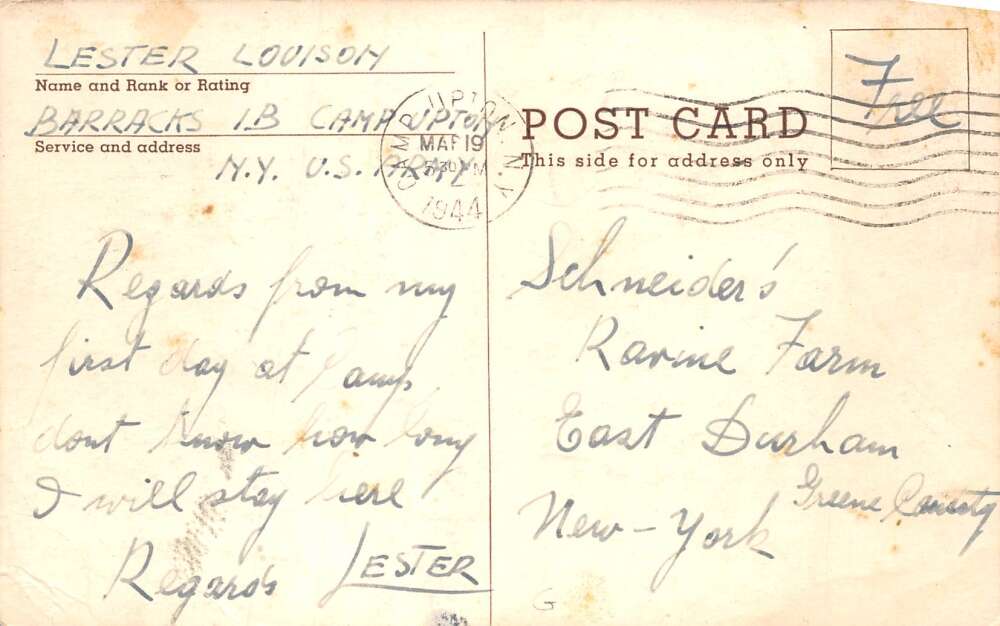 LESTER LOUISON
Name and Rank or Rating
BARRACKS 1B CAMP UPTON
Service and address
N.Y. U.S. ARMY
CAMP UPTON, N.Y.
MAR 19
5 30 PM
1944
POST CARD
This side for address only
Free
Regards from my
first day at Camp.
dont know how long
I will stay here
Regards LESTER
Schneider's
Ravine Farm
East Durham
Greene County
New-York
G